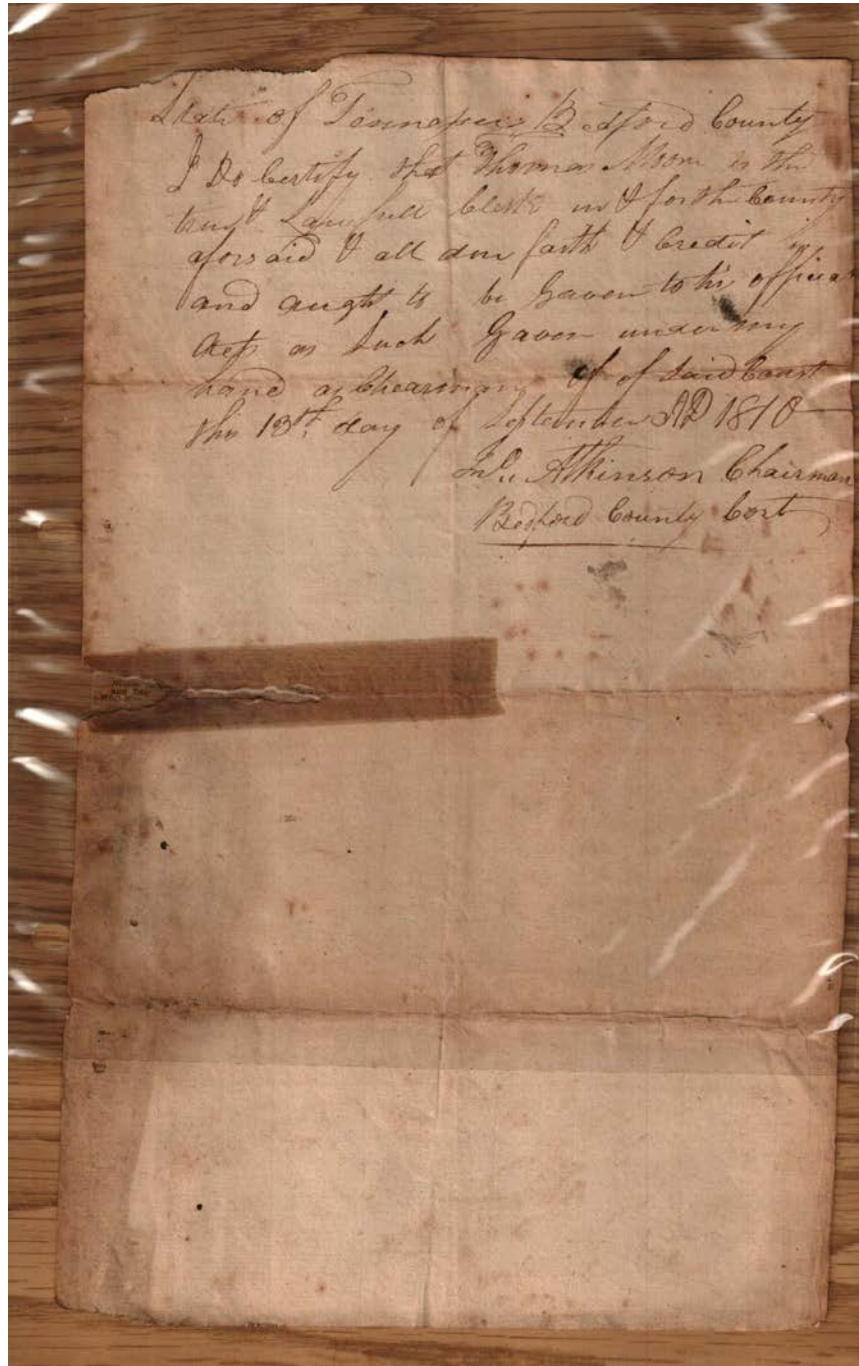 State of Tennessee Bedford County
I Do Certify that Thomas Moore is the
true & Lawfull Clerk in & for the County
aforsaid & all due faith & Credit is
and aught to be Gaven to his official
Acts as Such Gaven under my
hand as Chearman of of Said Court
this 13th day of September AD 1810
Jno. Atkinson Chairman
Bedford County Cort